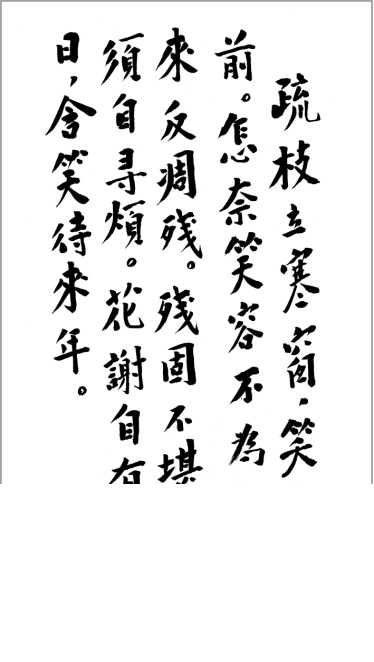 疏枝立寒窗，笑
前。怎奈笑容不為
來反凋残。残固不堪
須自寻煩。花謝自有
日，含笑待來年。